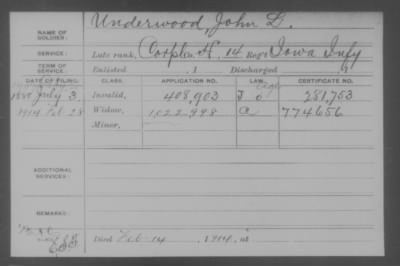 NAME OF SOLDIER: Underwood, John L.
SERVICE: Late rank, Corpl Co. H, 14 Reg't Iowa Infy
TERM OF SERVICE: Enlisted , 1 Discharged , 1
DATE OF FILING. CLASS. APPLICATION NO. LAW. CERTIFICATE NO.
1880 July 3, Invalid, 408,903 281,753
1914 Feb 28 Widow, 1,022,998 774656
Minor,
ADDITIONAL SERVICES:
REMARKS:
Died Feb 14, 1914, at